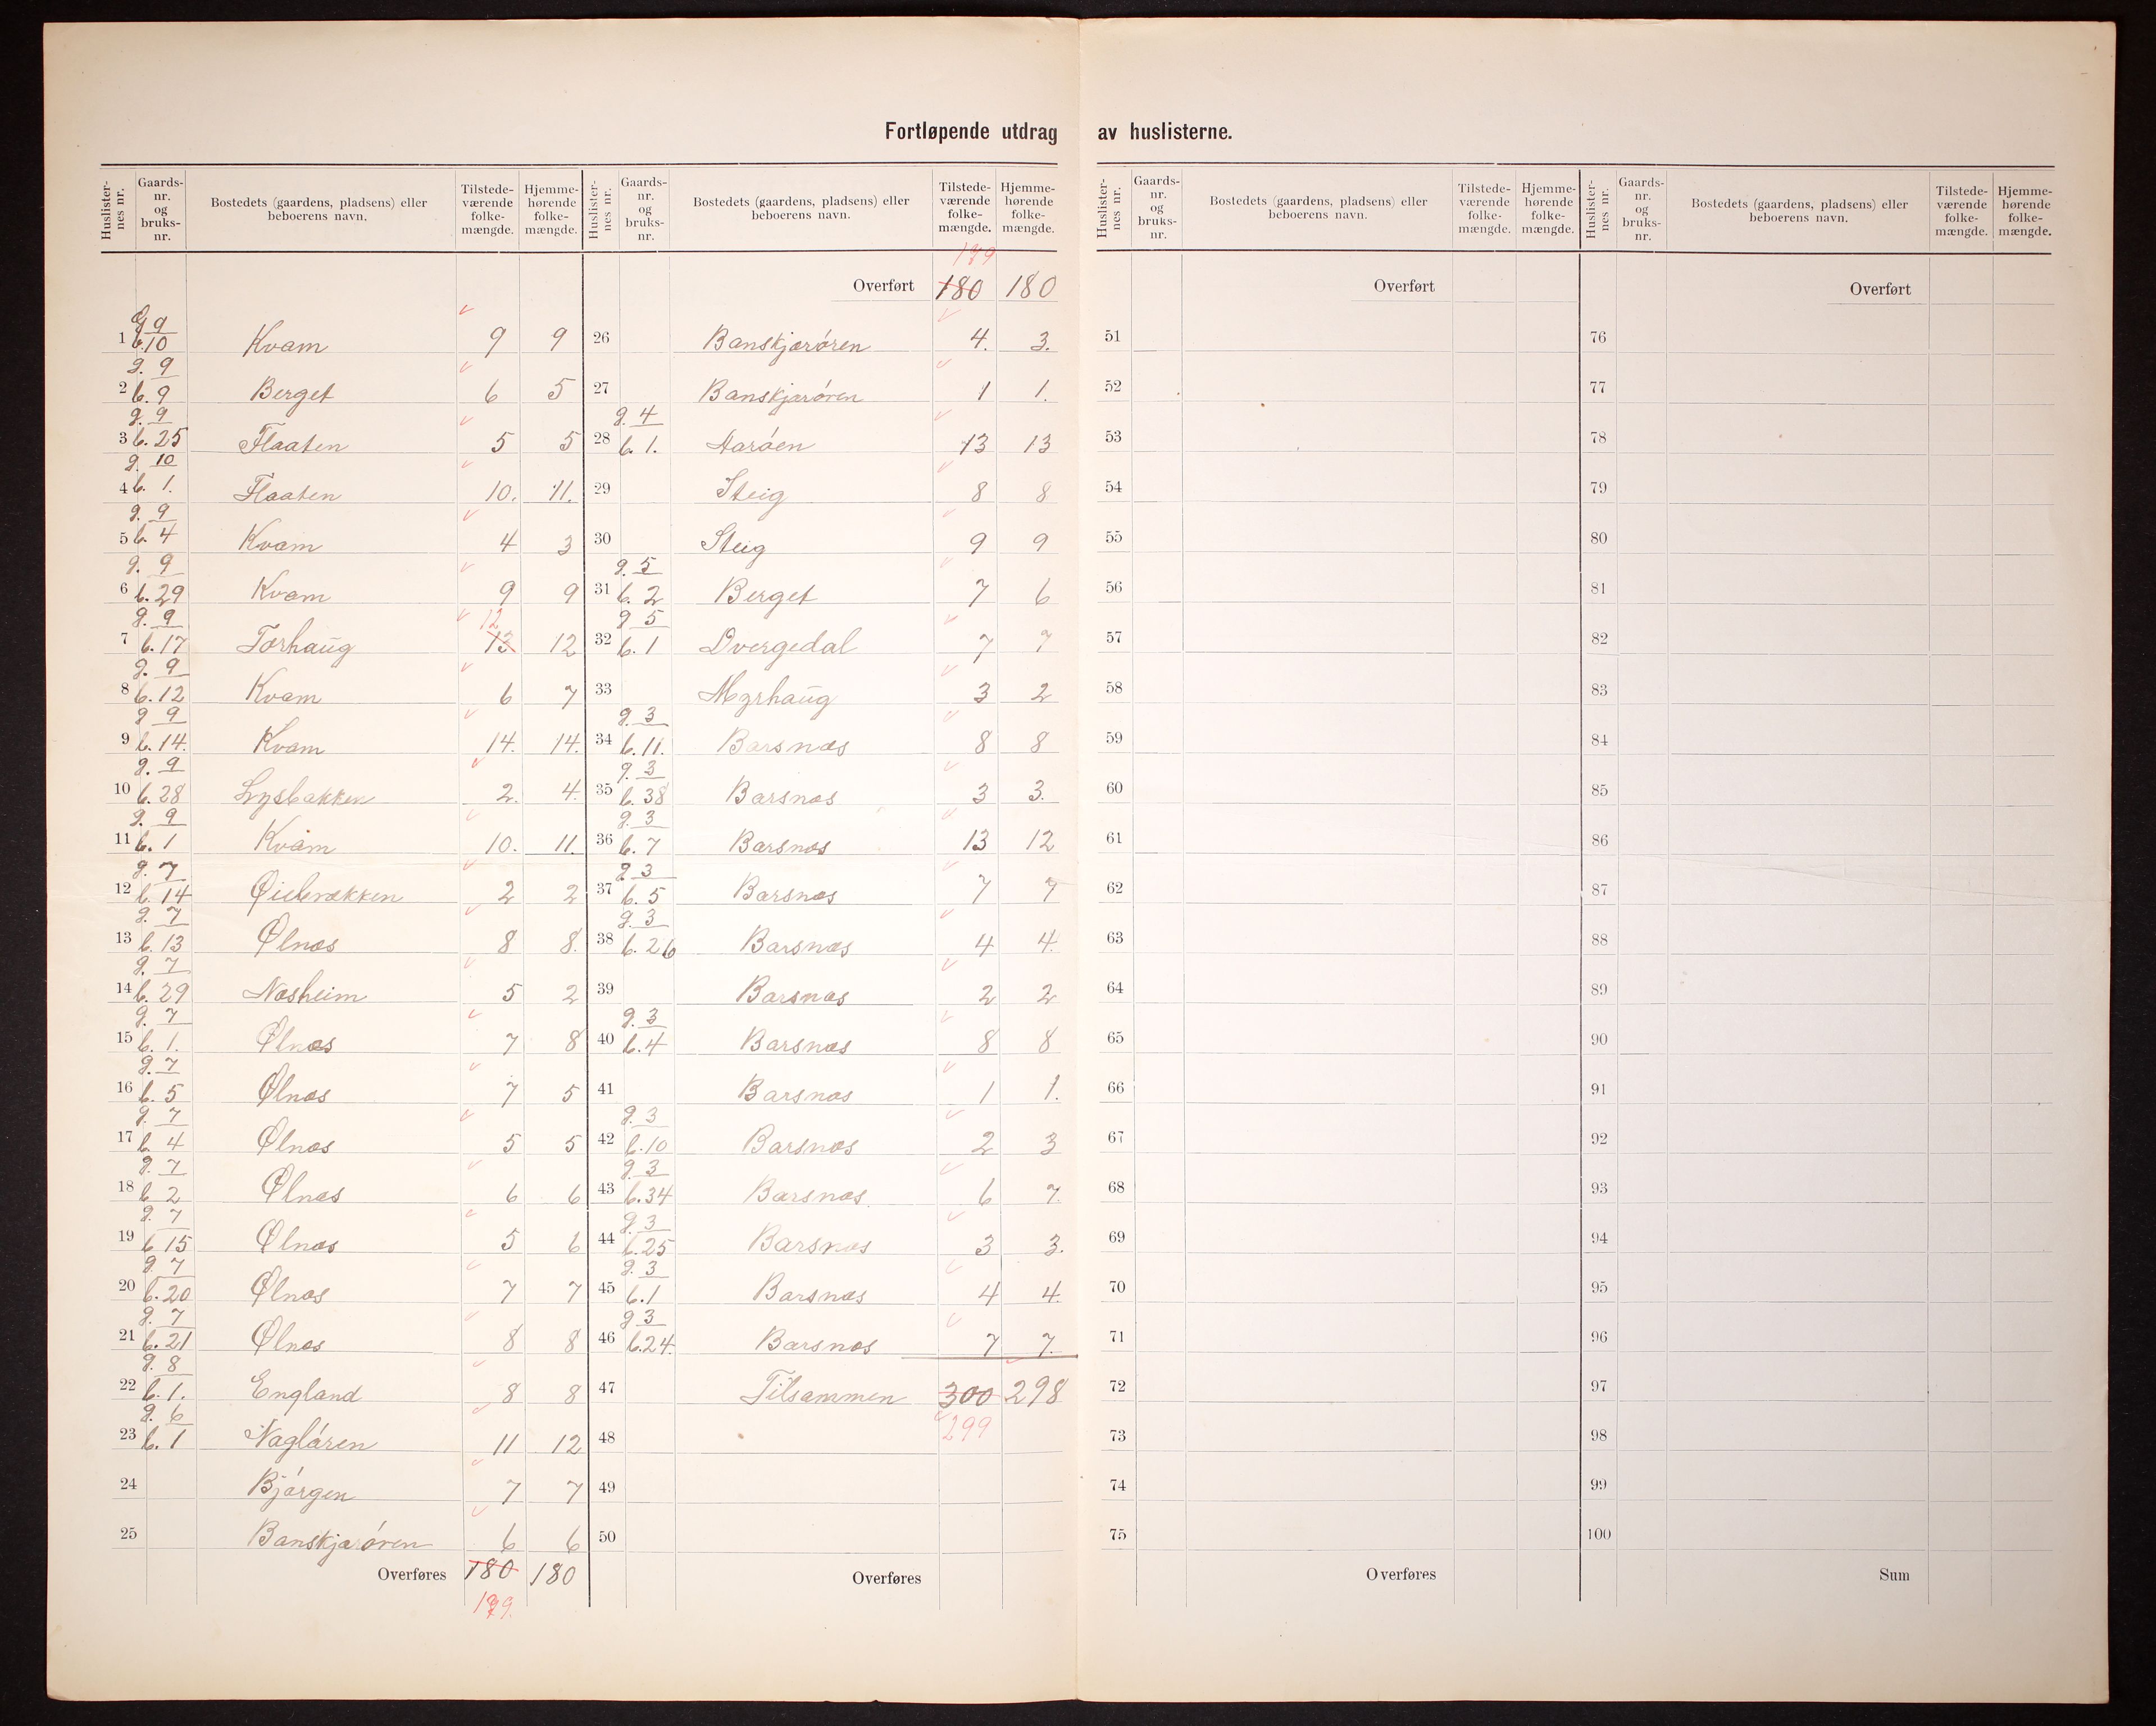 Fortløpende utdrag av huslisterne.
Huslister-nes nr. Gaards-nr. og bruks-nr. Bostedets (gaardens, pladsens) eller beboerens navn. Tilstede-værende folke-mængde. Hjemme-hørende folke-mængde.
1 g. 9 b. 10 Kvam 9 9
2 g. 9 b. 9 Berget 6 5
3 g. 9 b. 25 Flaaten 5 5
4 g. 10 b. 1. Flaaten 10. 11.
5 g. 9 b. 4 Kvam 4 3
6 g. 9 b. 29 Kvam 9 9
7 g. 9 b. 17 Torhaug 13 12 12
8 g. 9 b. 12 Kvam 6 7
9 g 9 b. 14. Kvam 14. 14.
10 g. 9 b. 28 Lysbakken 2. 4.
11 g. 9 b. 1 Kvam 10. 11.
12 g. 7 b. 14 2 2
13 g. 7 b. 13 Ølnæs 8 8.
14 g. 7 b. 29 Næsheim 5 2
15 g. 7 b. 1. Ølnæs 7 8
16 g. 7 b. 5 Ølnæs 7 5
17 g. 7 b. 4 Ølnæs 5 5
18 g. 7 b. 2 Ølnæs 6 6
19 g. 7 b. 15 Ølnæs 5 6
20 g. 7 b. 20 Ølnæs 7 7
21 g. 7 b. 21 Ølnæs 8 8
22 g. 8 b. 1. England 8 8
23 g. 6 b. 1 Nagløren 11 12
24 Bjørgen 7 7
25 Banskjærøren 6 6
Overføres 180 180
179.
Huslister-nes nr. Gaards-nr. og bruks-nr. Bostedets (gaardens, pladsens) eller beboerens navn. Tilstede-værende folke-mængde. Hjemme-hørende folke-mængde.
179
Overført 180 180
26 Banskjærøren 4. 3.
27 Banskjærøren 1 1.
28 g. 4 b. 1. Aarøen 13 13
29 Steig 8 8
30 Steig 9 9
31 g. 5 b. 2 Berget 7 6
32 g 5 b. 1 Dvergedal 7 7
33 Myrhaug 3 2
34 g. 3 b. 11. Barsnæs 8 8
35 g. 3 b. 38 Barsnæs 3 3.
36 g. 3 b. 7 Barsnæs 13 12
37 g. 3 b. 5 Barsnæs 7 7
38 g. 3 b. 26 Barsnæs 4 4.
39 Barsnæs 2 2
40 g. 3 b. 4 Barsnæs 8 8
41 Barsnæs 1 1.
42 g. 3 b. 10 Barsnæs 2 3
43 g. 3 b. 34 Barsnæs 6 7.
44 g. 3 b. 25 Barsnæs 3 3.
45 g. 3 b. 1 Barsnæs 4 4.
46 g 3 b. 24. Barsnæs 7 7.
47 Tilsammen 300 298
299
48
49
50
Overføres
Huslister-nes nr. Gaards-nr. og bruks-nr. Bostedets (gaardens, pladsens) eller beboerens navn. Tilstede-værende folke-mængde. Hjemme-hørende folke-mængde.
Overført
51
52
53
54
55
56
57
58
59
60
61
62
63
64
65
66
67
68
69
70
71
72
73
74
75
Overføres
Huslister-nes nr. Gaards-nr. og bruks-nr. Bostedets (gaardens, pladsens) eller beboerens navn. Tilstede-værende folke-mængde. Hjemme-hørende folke-mængde.
Overført
76
77
78
79
80
81
82
83
84
85
86
87
88
89
90
91
92
93
94
95
96
97
98
99
100
Sum